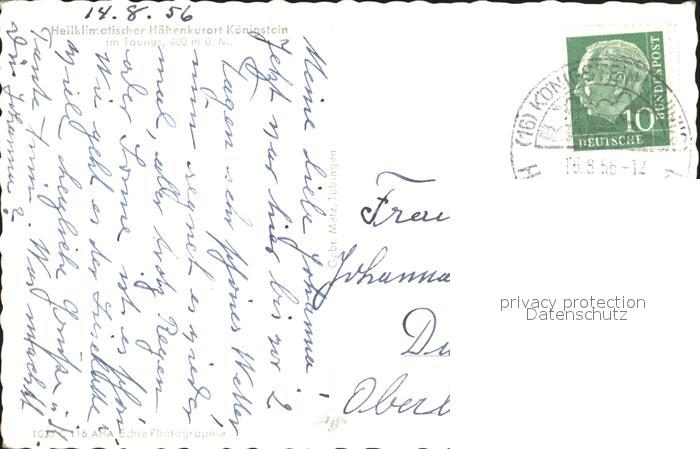 14.8.56
Heilklimatischer Höhenkurort Königstein
im Taunus, 400 m ü. M.
Meine liebe Johanna!
Jetzt war hier bis vor 2
Tagen sehr schönes Wetter
nun regnet es wieder
mal, aber trotz Regen
oder Sonne ist es schön
Wie geht es der
viele herzliche Grüße
Tante Was machst
Du Johanna?
1023 116 AHA Echte Photographie
Gebr. Metz, Tübingen
Frau
Johanna
Du
Ober
BUNDESPOST
10
DEUTSCHE
(16) KÖNIGSTEIN
15.8.56-12
privacy protection
Datenschutz